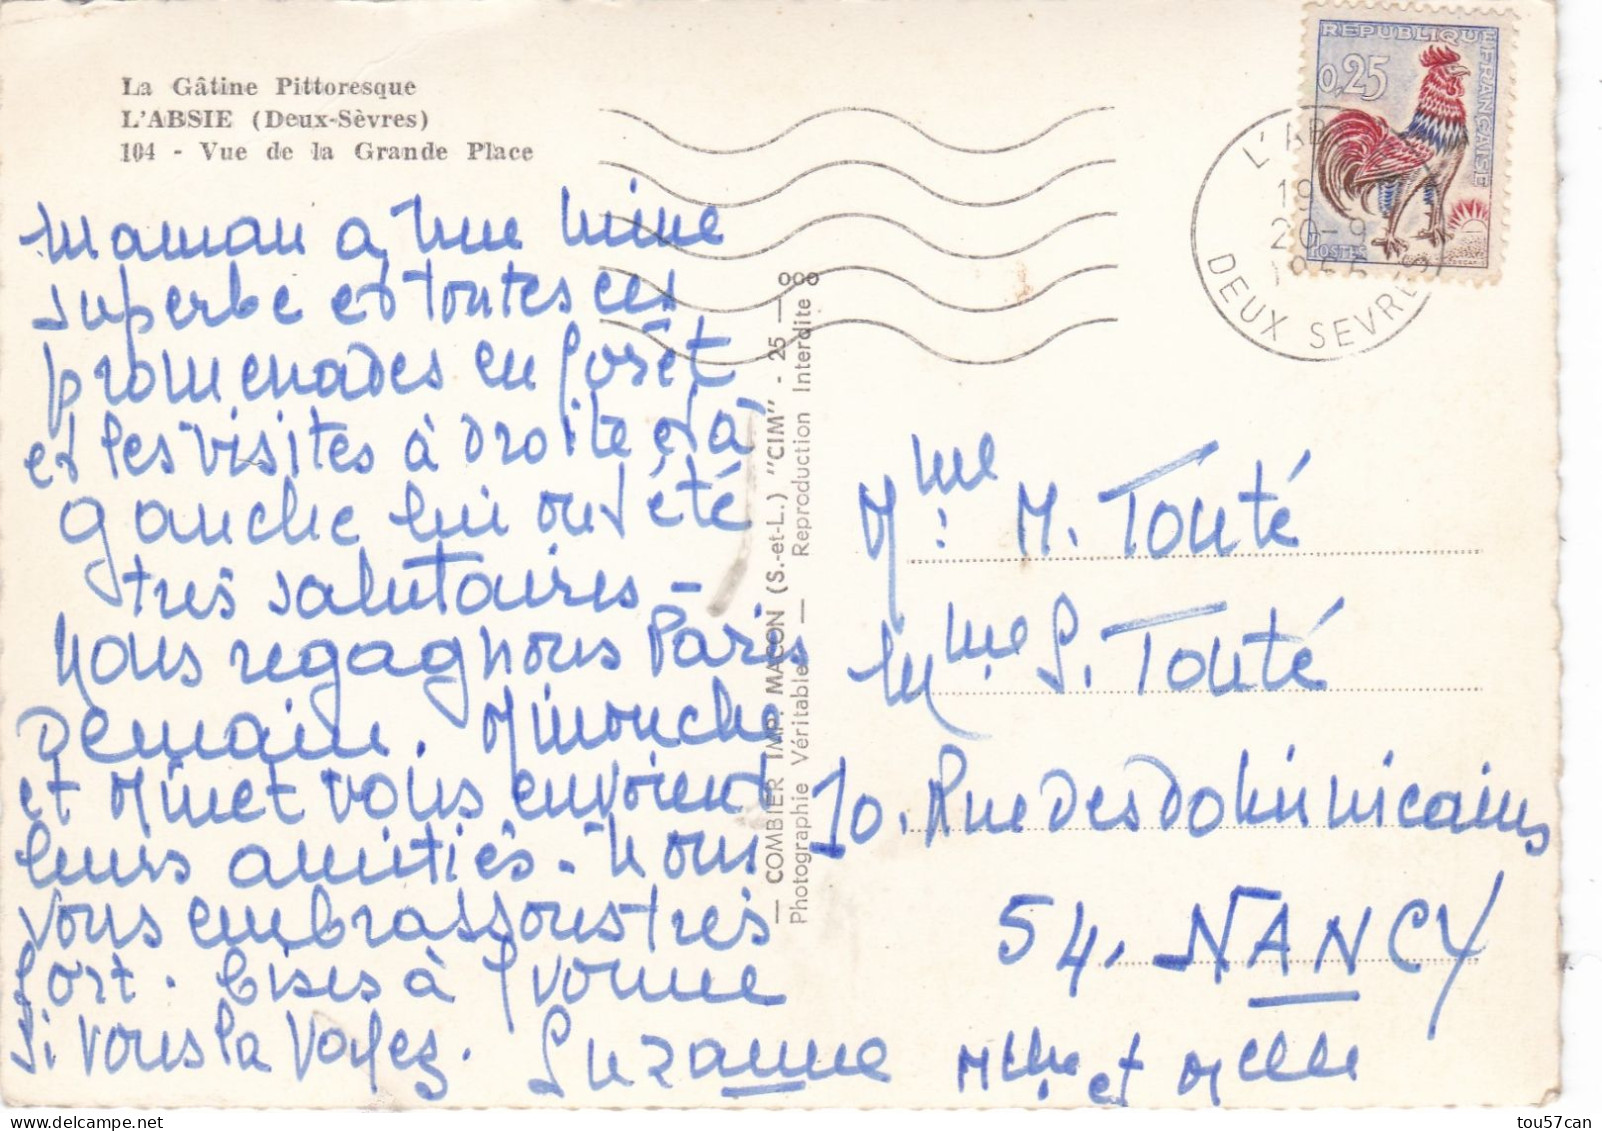 La Gâtine Pittoresque
L'ABSIE (Deux-Sèvres)
104 - Vue de la Grande Place
Maman a, une mine
superbe et toutes ces
promenades en forêt
et les visites à droite et à
gauche lui ont été
très salutaires -
Nous regagnons Paris
Demain. Minouche
et Minet vous envoient
leurs amitiés - Nous
vous embrassons très
fort. Bises à Yvonne
si vous la voyez. Suzanne
— COMBIER IMP. MACON (S.-et-L.) "CIM" - 25 —
Photographie Véritable — Reproduction Interdite
REPUBLIQUE FRANÇAISE
0,25
POSTES
L'AB
19
20-9
DEUX SEVRE
Mme M. Touté
Mme S. Touté
10. Rue Des Dominicains
54. NANCY
Mthe et Mlle
tou57can